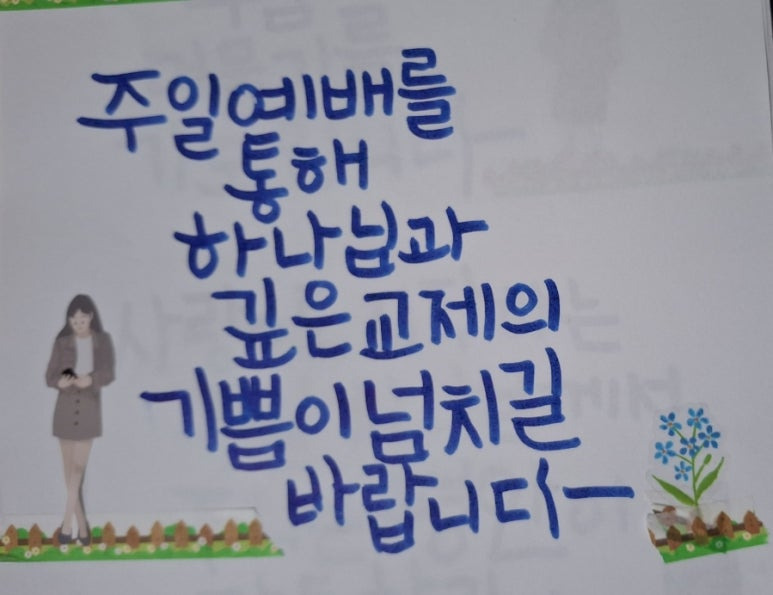 주일예배를
통해
하나님과
깊은교제의
기쁨이넘치길
바랍니다